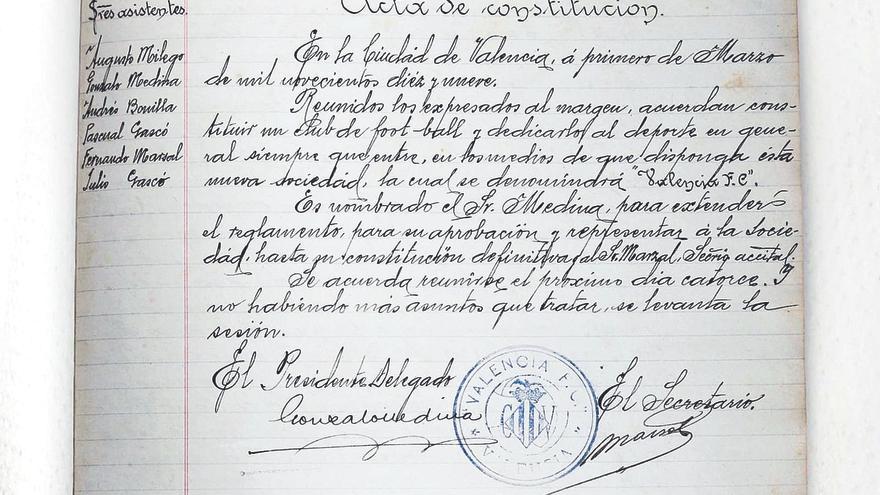 Sres asistentes.
Augusto Milego
Gonzalo Medina
Andrés Bonilla
Pascual Gascó
Fernando Marzal
Julio Gascó
Acta de constitución.
En la Ciudad de Valencia, á primero de Marzo
de mil novecientos diéz y nueve.
Reunidos los expresados al margen, acuerdan cons-
tituir un Club de foot-ball y dedicarlo, al deporte en gene-
ral siempre que entre, en los medios de que disponga ésta
nueva sociedad, la cual se denominará "Valencia F.C".
Es nombrado el Sr. Medina, para extender
el reglamento, para su aprobación y representar á la Socie-
dad, hasta su constitución definitiva, al Sr. Marzal, Secrio accital.
Se acuerda reunirse el próximo dia catorce. Y
no habiendo más asuntos que tratar, se levanta la
sesión.
El Presidente Delegado
Gonzalo Medina
VALENCIA F.C.
VALENCIA
El Secretario.
Marzal